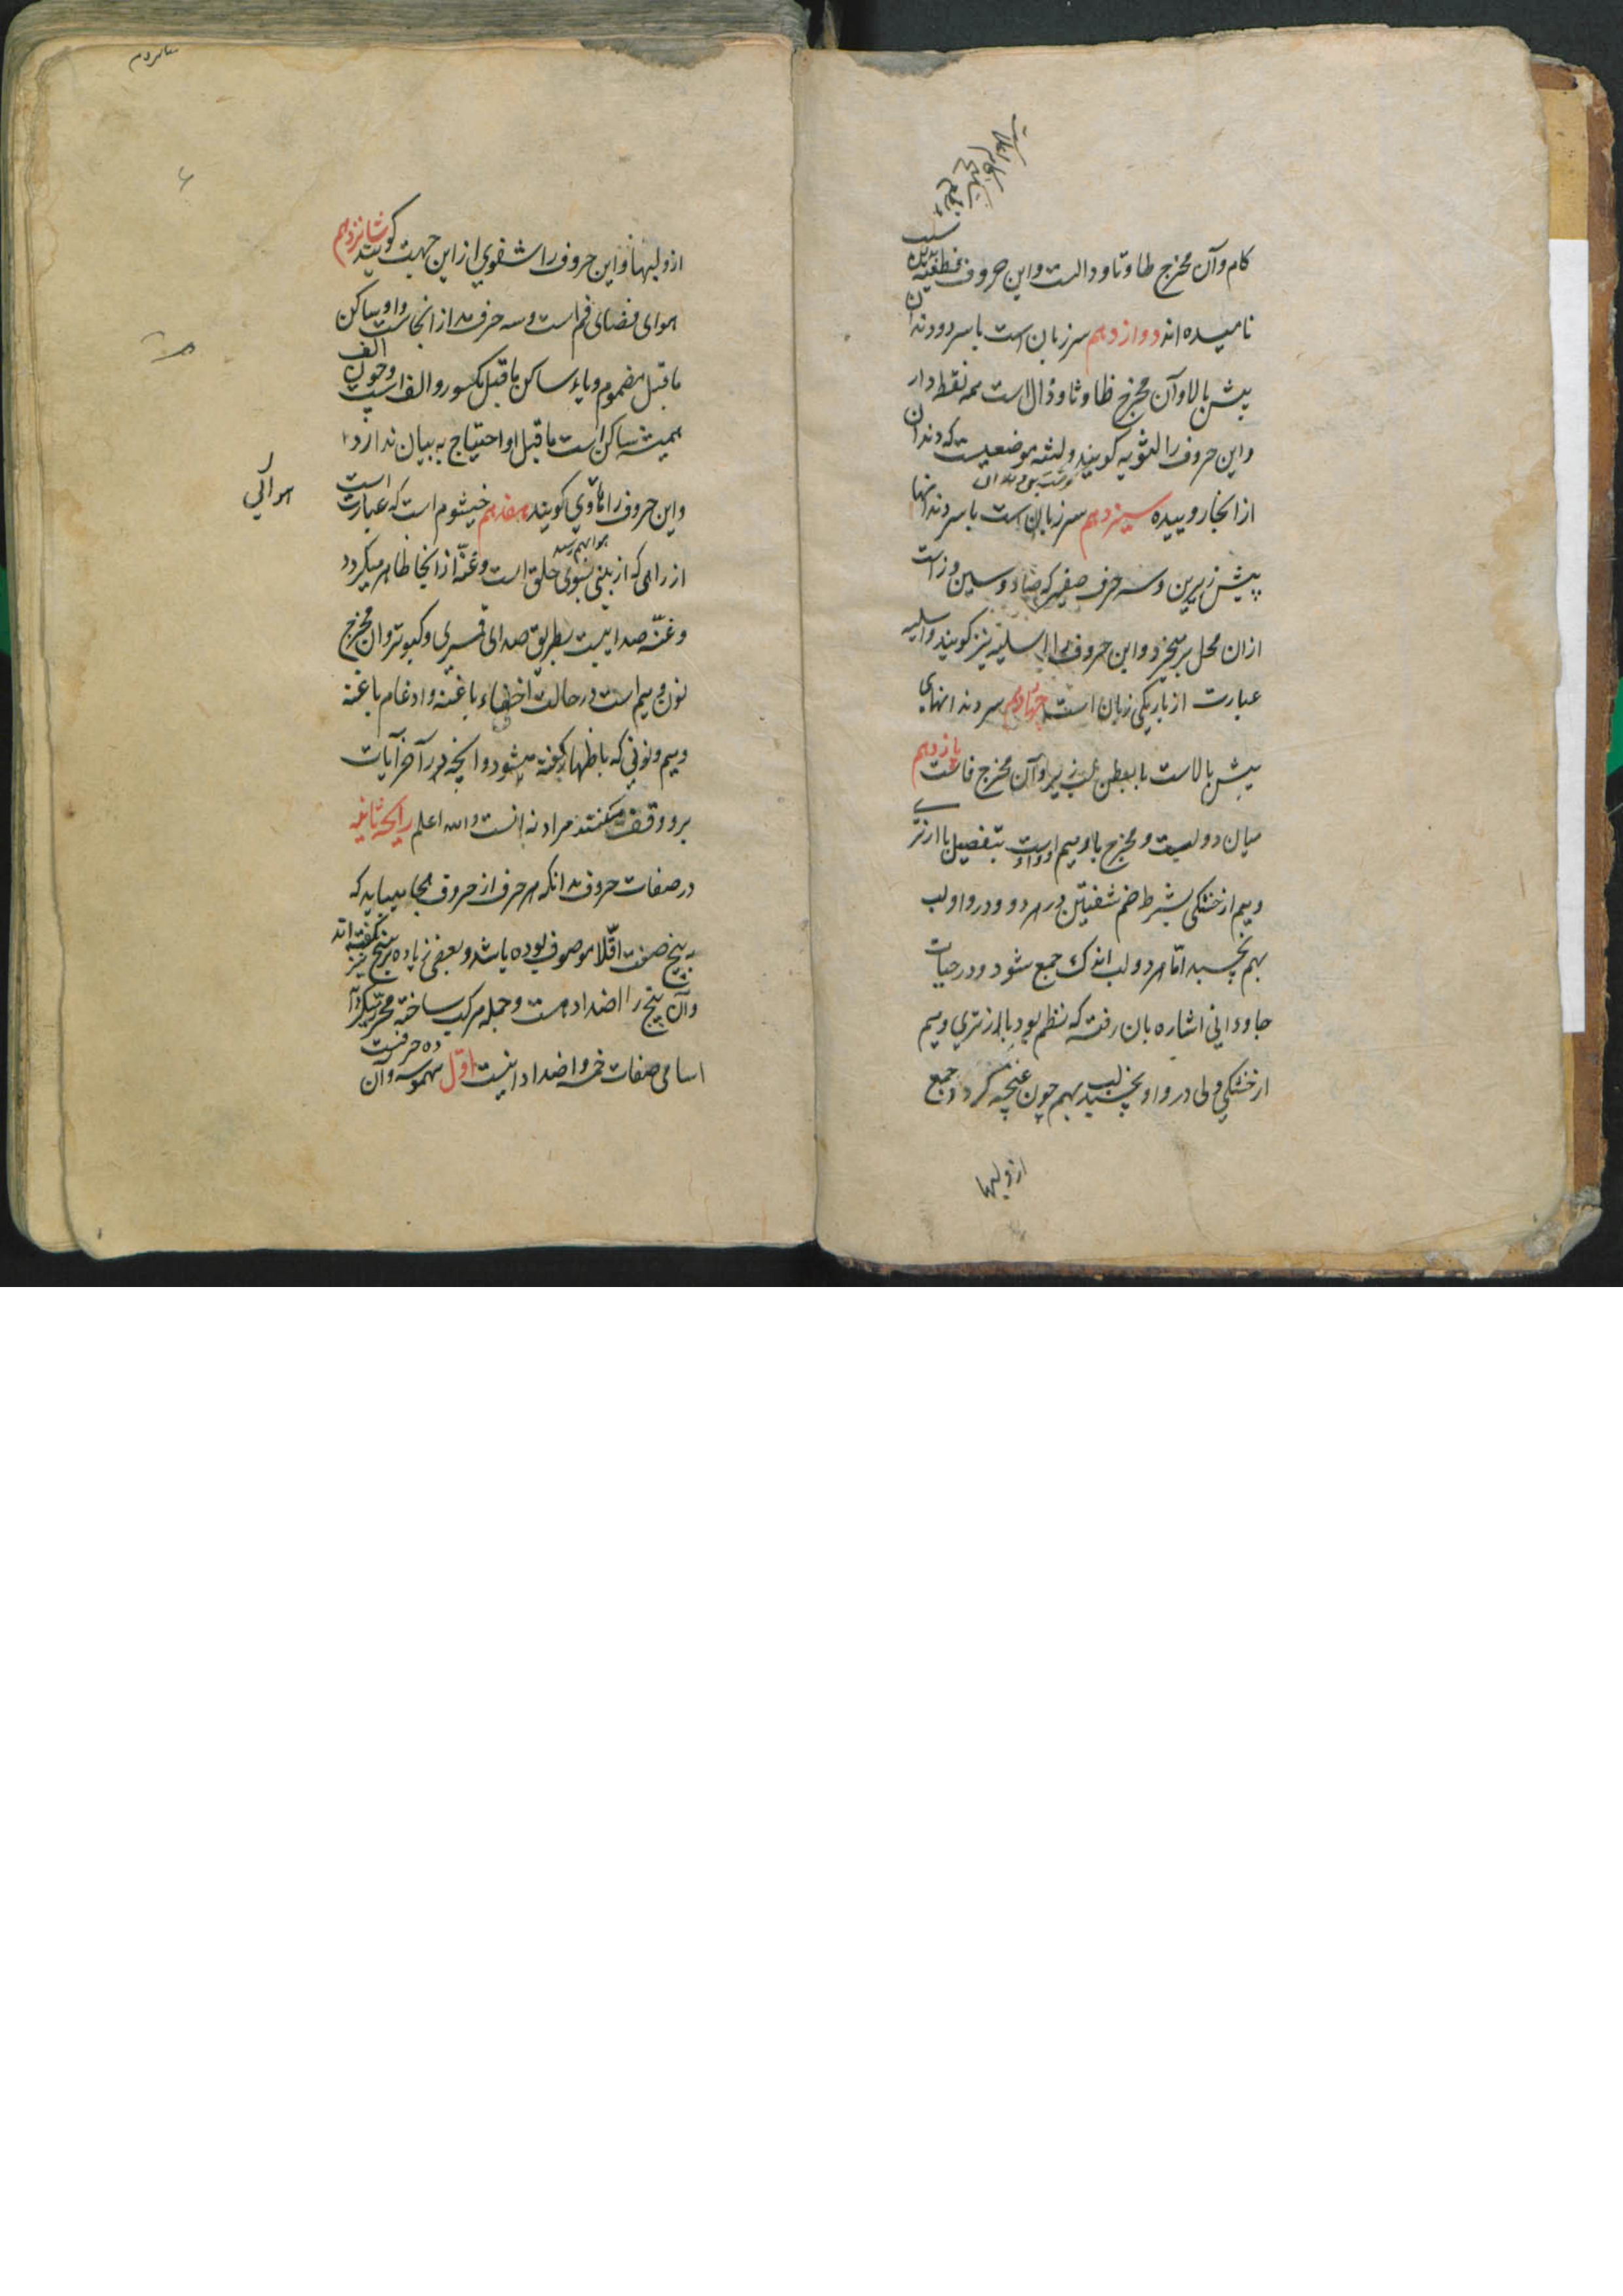 کام و آن مخرج طا و تا و دالست و این حروف نطعیه
نامیده اند دوازدهم سر زبان است با سر دو دندان
پیش بالا و آن مخرج ظا و ثا و ذال است همه نقطه دار
و این حروف را لثویه کویند و لثه موضعیست که دندان
از انجا روییده سیزدهم سر زبان است با سر دندانها
پیش زیرین و سه حرف صفیر که صاد و سین و زاست
ازان محل برمیخزد و این حروف را اسلیه نیز کویند و اسلیه
عبارت از باریکی زبان است چهاردهم سر دندانهای
پیش بالاست با بطن لب زیر و آن مخرج فاست پازدهم
میان دو لبست و مخرج با و میم و واوست بتفصیل با از تری
و میم از خشکی بشرط ضم شفتین در هر دو و در واو لب
بهم نچسبد اما هر دو لب اندک جمع شود و در حیات
جاودانی اشاره بان رفته که نظم بود با از تری و میم
از خشکی ولی در واو نچسبد لب بهم چون غنچه کردد جمع
از و لبها
از و لبها و این حروف را شفوی از این جهت کویند شانزدهم
هوای فضای فم است و سه حرف مد از انجاست واو ساکن
ماقبل مضموم و یاء ساکن ماقبل مکسور و الف است و چون الف
همیشه ساکن است ماقبل او احتیاج به بیان ندارد
و این حروف را هاوی کویند هفدهم خیشوم است که عبارت است
هوائی
از راهی که از بینی بسوی حلق است و غنّه از انجا ظاهر میکردد
و غنّه صدائیست بطریق صدای قمری و کبوتر و ان مخرج
نون و میم است در حالت اخفاء باغنه و ادغام باغنه
و میم و نونی که باظهار کفته میشود و انچه در آخر آیات
بر و وقف میکنند مراد نه انست والله اعلم رایحه ثانیه
در صفات حروف بدانکه هر حرف از حروف هجا میباید که
به پنج صفت اقلا موصوف بوده باشد و بعضی زیاده بر پنج نیز کفته اند
و آن پنج را اضداد هست و جمله مرکب ساخته
اسامی صفات خمسه و اضداد اینست اوّل مهموسه و آن ده حرفست